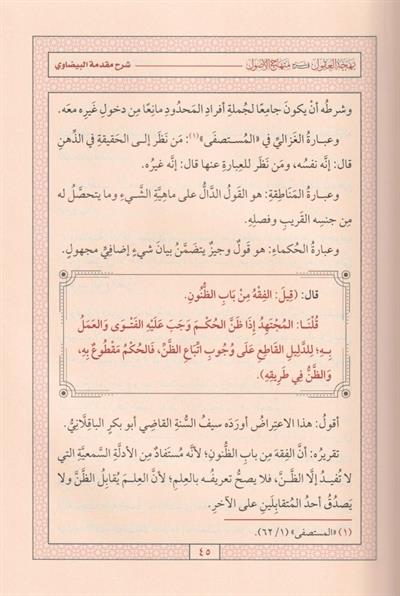 بهجة العقول في شرح منهاج الأصول
شرح مقدمة البيضاوي
وشرطُه أنْ يكونَ جامِعًا لجُملةِ أفرادِ المَحدُودِ مانِعًا مِن دخولِ غَيرِه معَه.
وعبارةُ الغَزاليِّ في «المُستصفَى»(١): مَن نَظَر إلى الحَقيقةِ في الذِّهنِ
قالَ: إنَّه نفسُه، ومَن نَظَر للعِبارةِ عنها قال: إنَّه غيرُه.
وعبارةُ المَناطِقةِ: هو القَولُ الدَّالُّ على ماهِيَّةِ الشَّيءِ وما يتحصَّلُ له
مِن جنسِه القَريبِ وفصلِه.
وعبارةُ الحُكماءِ: هو قولٌ وجيزٌ يتضَمَّنُ بيانَ شيءٍ إضافيٍّ مجهولٍ.
قال: (قِيلَ: الفِقْهُ مِنْ بَابِ الظُّنُونِ.
قُلْنَا: المُجْتَهِدُ إِذَا ظَنَّ الحُكْمَ وَجَبَ عَلَيْهِ الفَتْوَى وَالعَمَلُ
بِهِ؛ لِلدَّلِيلِ القَاطِعِ عَلَى وُجُوبِ اتِّبَاعِ الظَّنِّ، فَالحُكْمُ مَقْطُوعٌ بِهِ،
وَالظَّنُّ فِي طَرِيقِهِ).
أقولُ: هذا الاعتِراضُ أورَدَه سيفُ السُّنةِ القاضِي أبو بكرٍ الباقِلَّانِيُّ.
تقريرُه: أنَّ الفِقهَ مِن بابِ الظُّنونِ؛ لأنَّه مُستَفادٌ مِن الأدلَّةِ السَّمعيَّةِ التي
لا تُفيدُ إلَّا الظَّنَّ، فلا يصحُّ تعريفُه بالعِلمِ؛ لأنَّ العِلمَ يُقابِلُ الظَّنَّ ولا
يَصدُقُ أحدُ المُتقابِلَينِ على الآخَرِ.
(١) «المستصفى» (١/ ٦٢).
٤٥